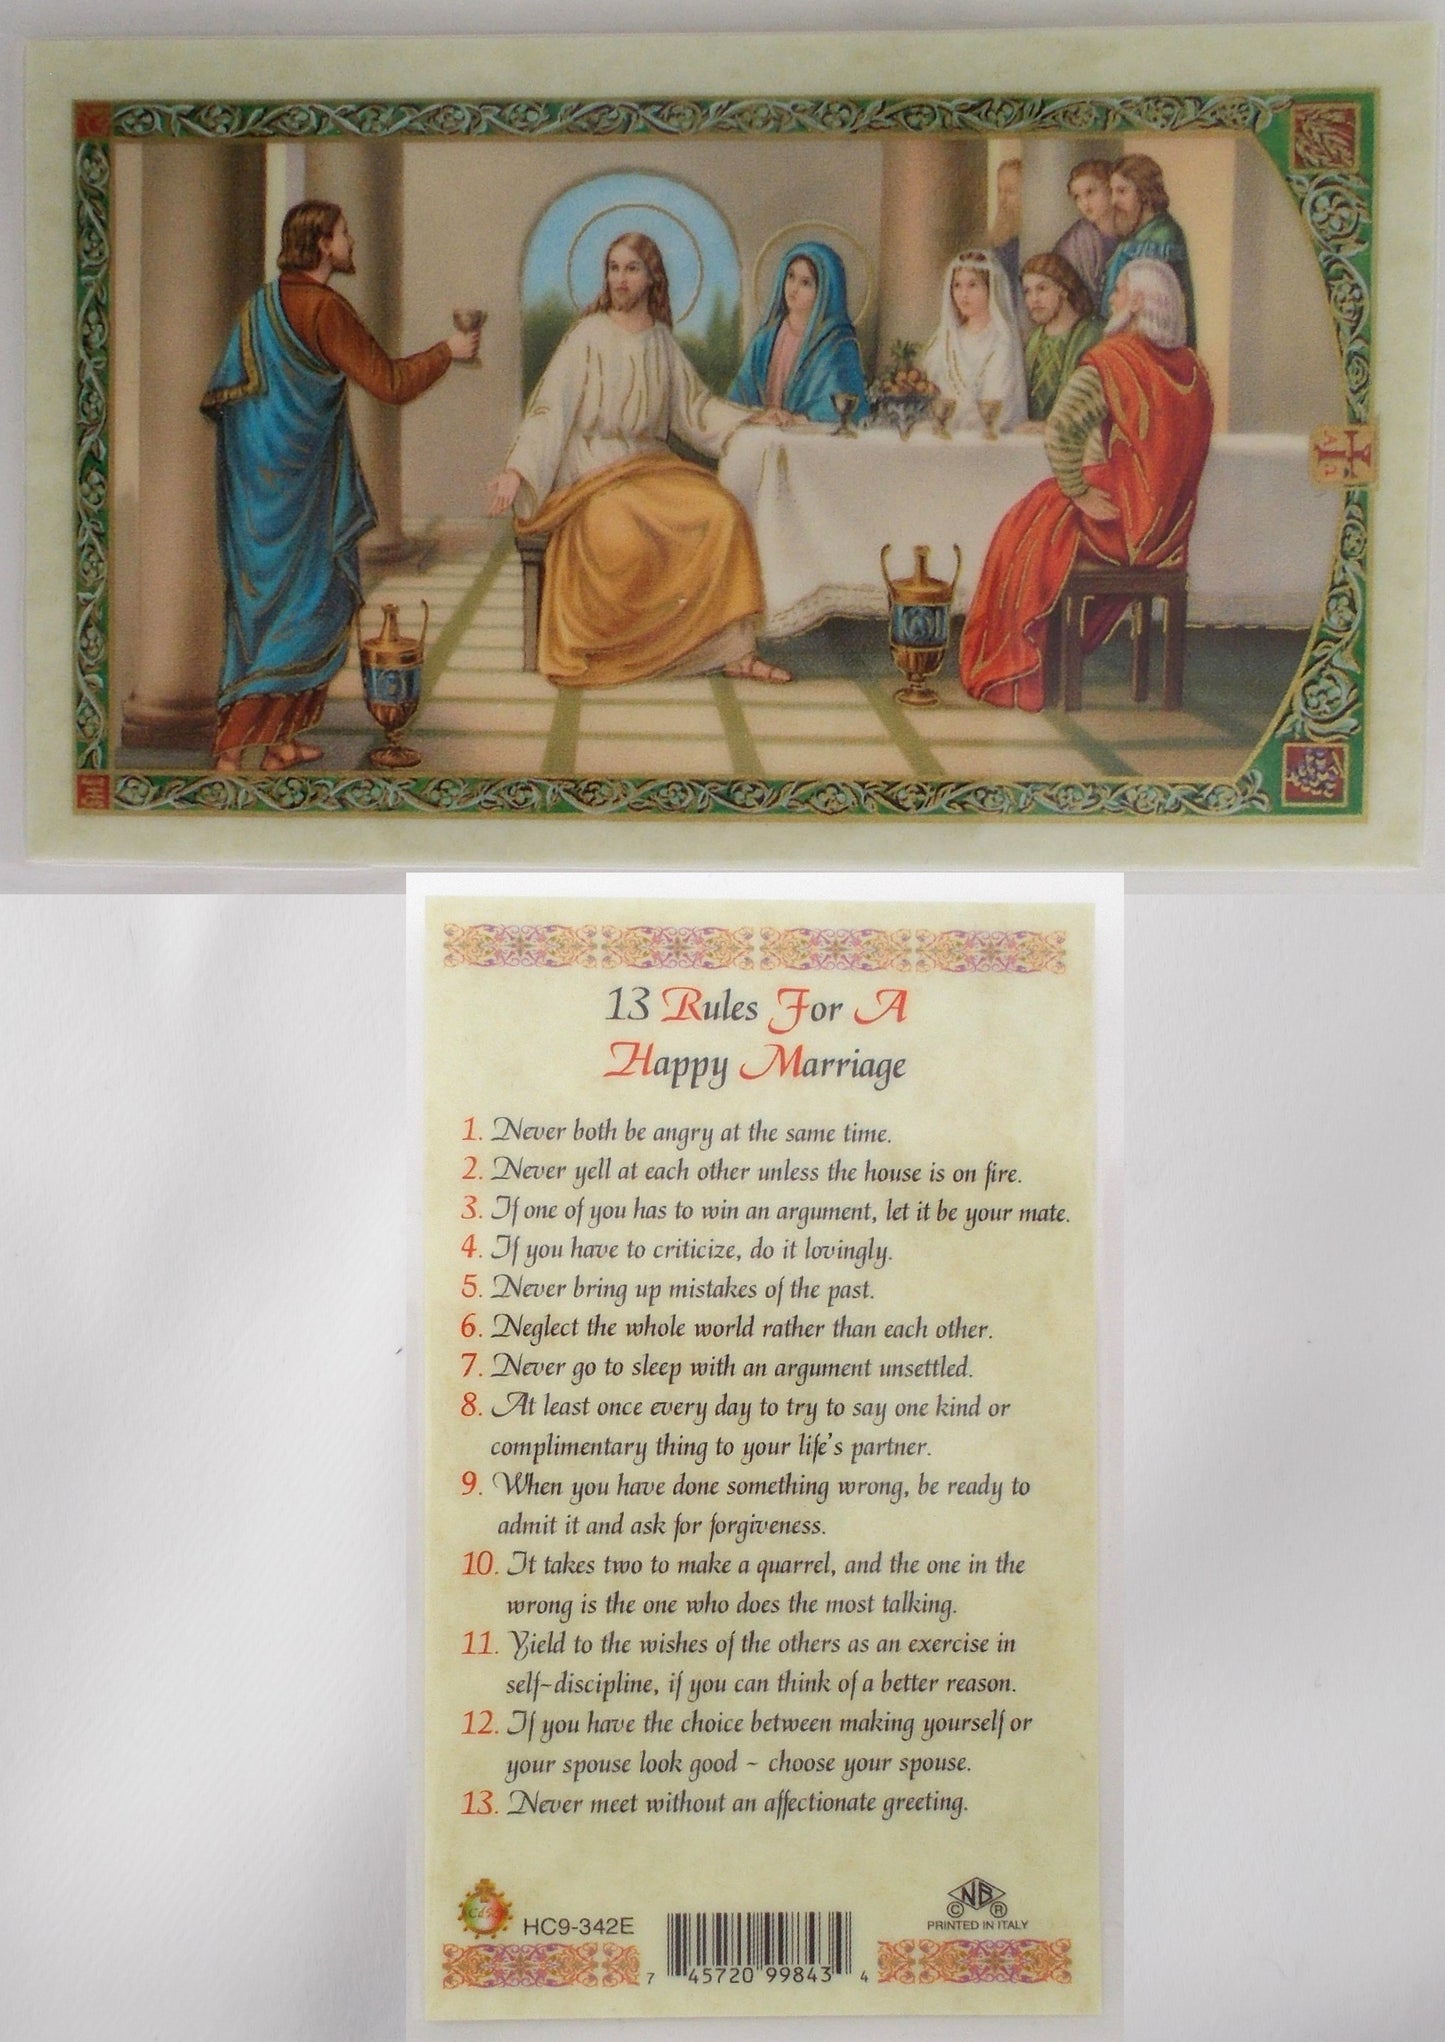 13 Rules For A
Happy Marriage
1. Never both be angry at the same time.
2. Never yell at each other unless the house is on fire.
3. If one of you has to win an argument, let it be your mate.
4. If you have to criticize, do it lovingly.
5. Never bring up mistakes of the past.
6. Neglect the whole world rather than each other.
7. Never go to sleep with an argument unsettled.
8. At least once every day to try to say one kind or
complimentary thing to your life's partner.
9. When you have done something wrong, be ready to
admit it and ask for forgiveness.
10. It takes two to make a quarrel, and the one in the
wrong is the one who does the most talking.
11. Yield to the wishes of the others as an exercise in
self~discipline, if you can think of a better reason.
12. If you have the choice between making yourself or
your spouse look good ~ choose your spouse.
13. Never meet without an affectionate greeting.
NB
C R
HC9-342E
PRINTED IN ITALY
7 45720 99843 4